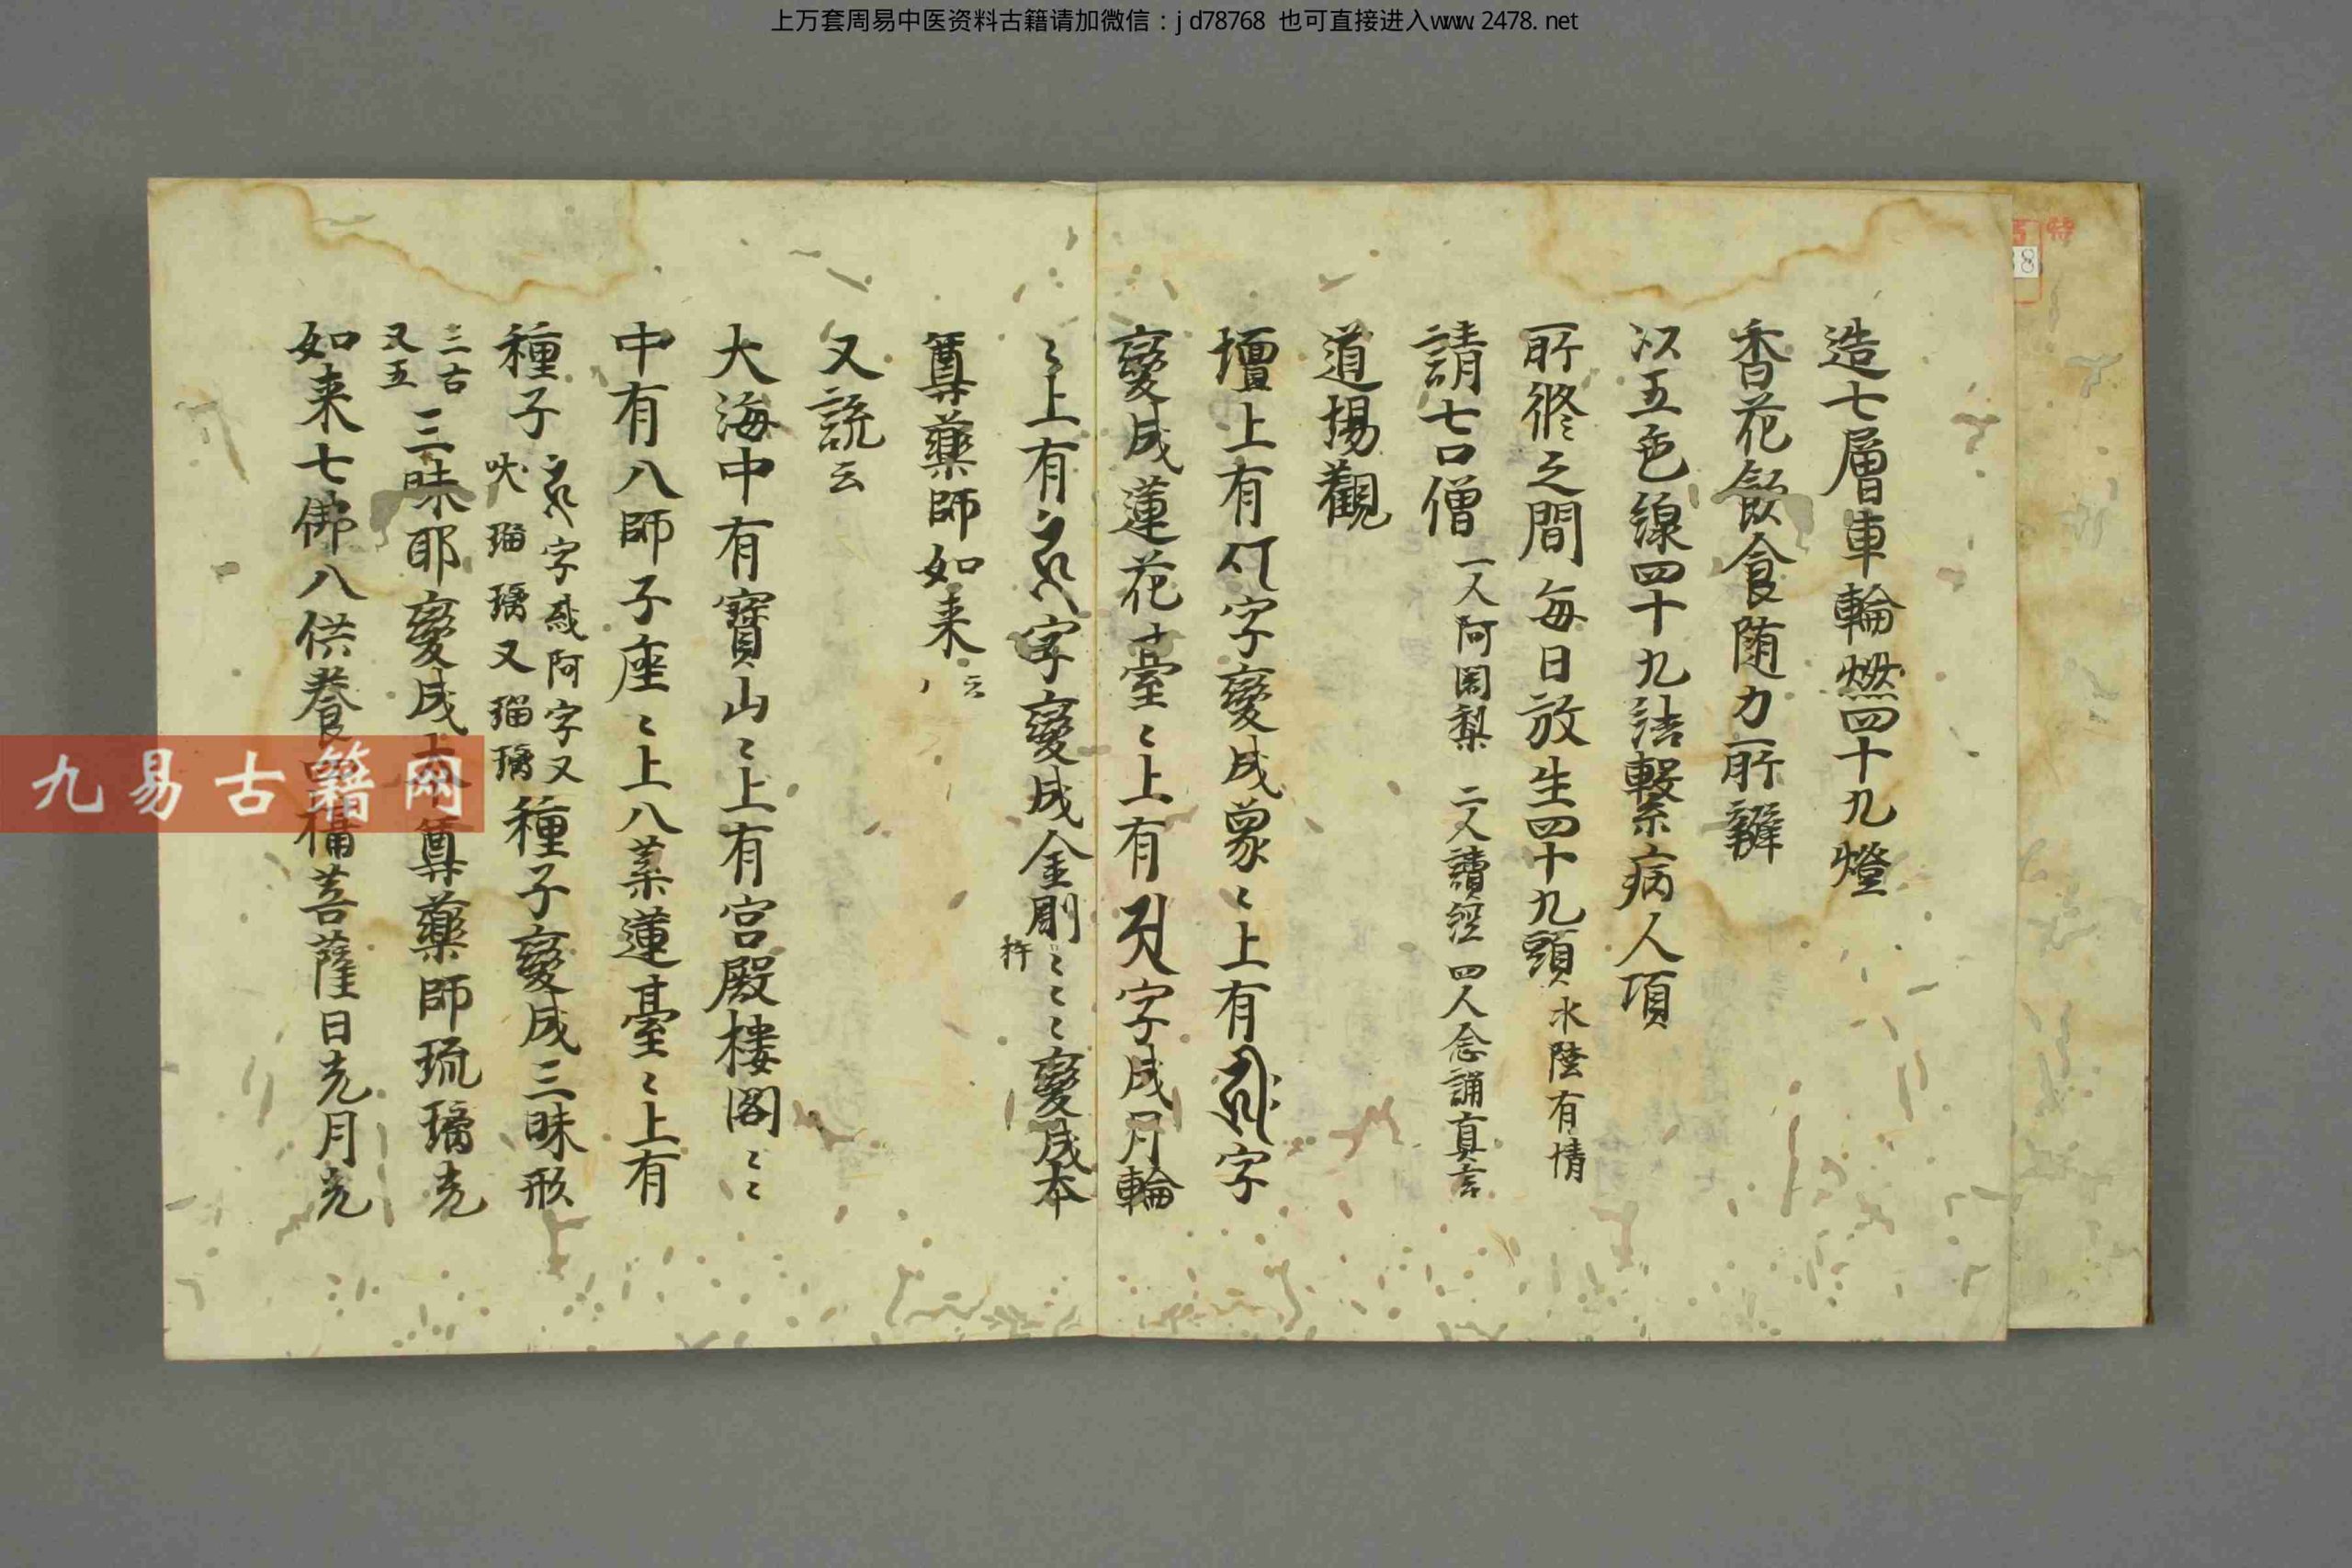 上万套周易中医资料古籍请加微信：jd78768 也可直接进入www.2478.net
特
38
造七層車輪燃四十九燈
香花飲食随力所辦
以五色線四十九結繫病人項
所修之間每日放生四十九頭水陸有情
請七口僧一人阿闍梨 二人讀經 四人念誦真言
道場觀
壇上有字變成象〻上有字
變成蓮花臺〻上有字成月輪
〻上有字變成金剛杵〻〻〻變成本
尊藥師如来云〻
又説云
大海中有寶山〻上有宮殿樓閣〻〻
中有八師子座〻上八葉蓮臺〻上有
種子字或阿字又吠瑠璃又瑠璃種子變成三昧形
三古又五三昧耶變成尊藥師琉璃光
如来七佛八供養菩薩日光月光
九易古籍网